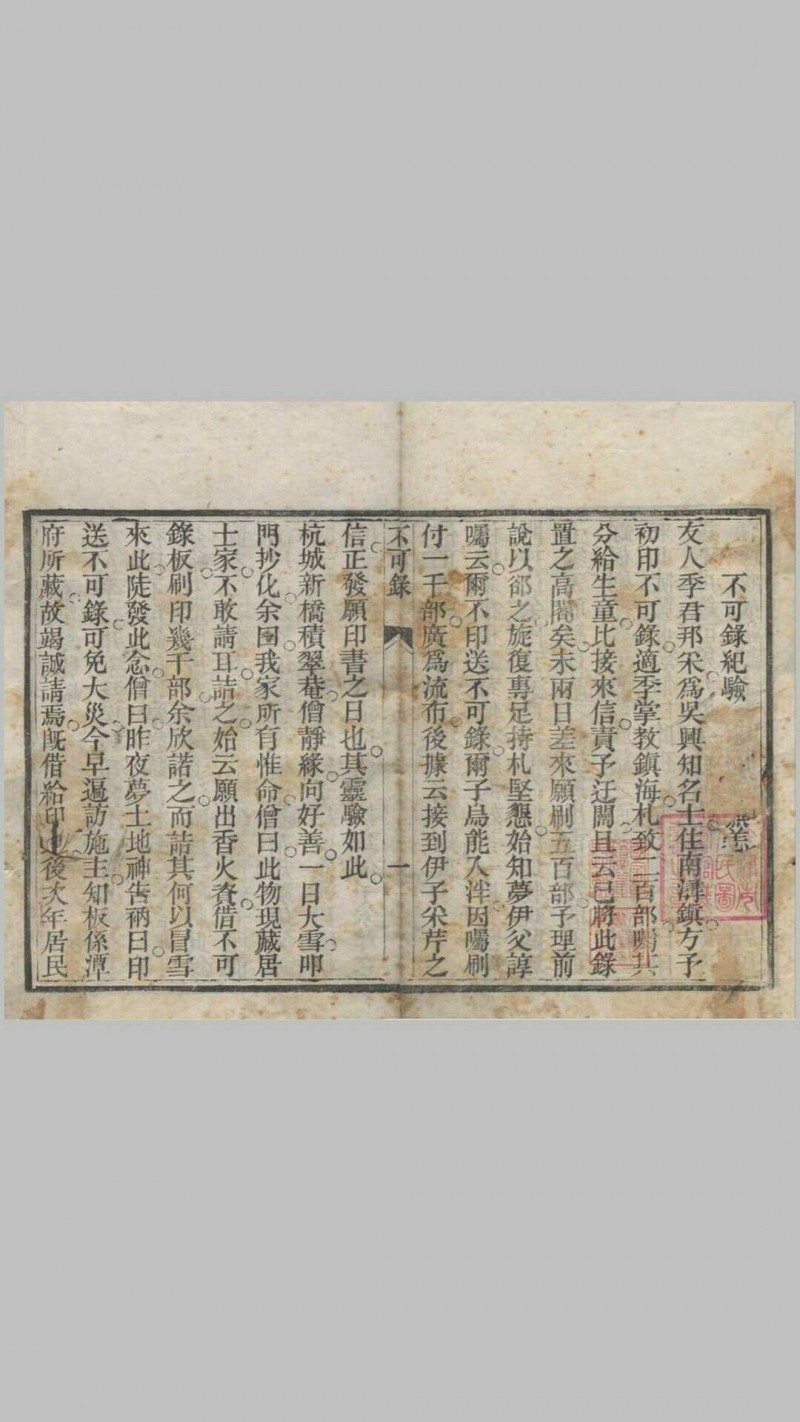 不可錄紀驗
友人季君邦采爲吳興知名士住南潯鎮方予
初印不可錄適季掌教鎮海札致二百部囑其
分給生童比接來信責予迂闊且云已將此錄
置之高閣矣未兩日差來願刷五百部予理前
說以郤之旋復專足持札堅懇始知夢伊父諄
囑云爾不印送不可錄爾子烏能入泮因囑刷
付一千部廣爲流布後據云接到伊子采芹之
不可錄 一
信正發願印書之日也其靈驗如此
杭城新橋積翠菴僧靜緣向好善一日大雪叩
門抄化余因我家所有惟命僧曰此物現藏居
士家不敢請耳詰之始云願出香火資借不可
錄板刷印幾千部余欣諾之而詰其何以冒雪
來此陡發此念僧曰昨夜夢土地神告衲曰印
送不可錄可免大災今早遍訪施主知板係潭
府所藏故竭誠請焉旣借給印史後次年居民